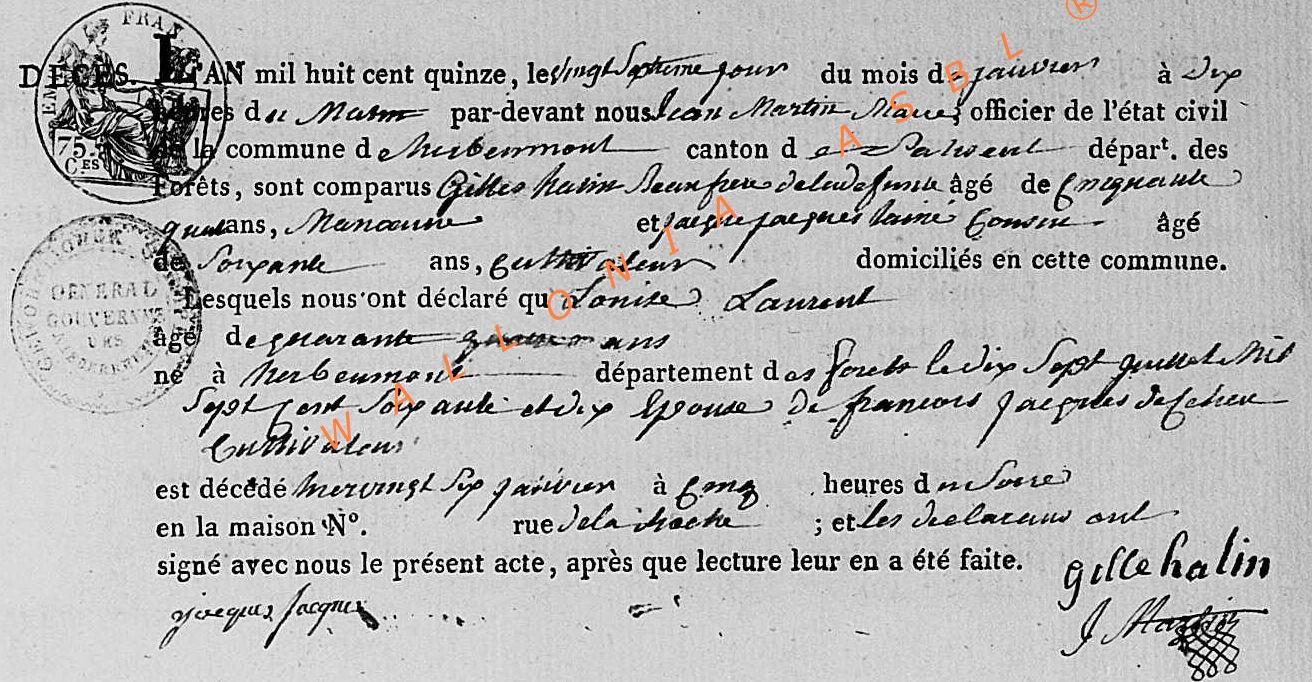 DÉCÈS. L'AN mil huit cent quinze, le vingt Septieme jour du mois de janvier à dix
heures du Matin par-devant nous Jean Martin Maire, officier de l'état civil
de la commune d'herbeumont canton de Paliseul départ. des
Forêts, sont comparus Gilles halin beaufrere de la defunte âgé de Cinquante
quatre ans, Manoeuvre et jacque jacques lainé Cousin âgé
de Soixante ans, Cultivateur domiciliés en cette commune.
Lesquels nous ont déclaré que Louise Laurent
âgé de quarante ans
né à herbeumont département des forets le dix Sept juillet Mil
Sept Cent Soixante et dix Epouse de francois Jacques
Cultivateur
est décédé hier vingt Six janvier à Cinq heures du Soire
en la maison N°. rue de la Roche ; et les declarans ont
signé avec nous le présent acte, après que lecture leur en a été faite.
gille halin
jacques jacques
J Martin
FRAN
EMP
75
CES
GENERAL
GOUVERNEM
WALLONIA ASBL ®